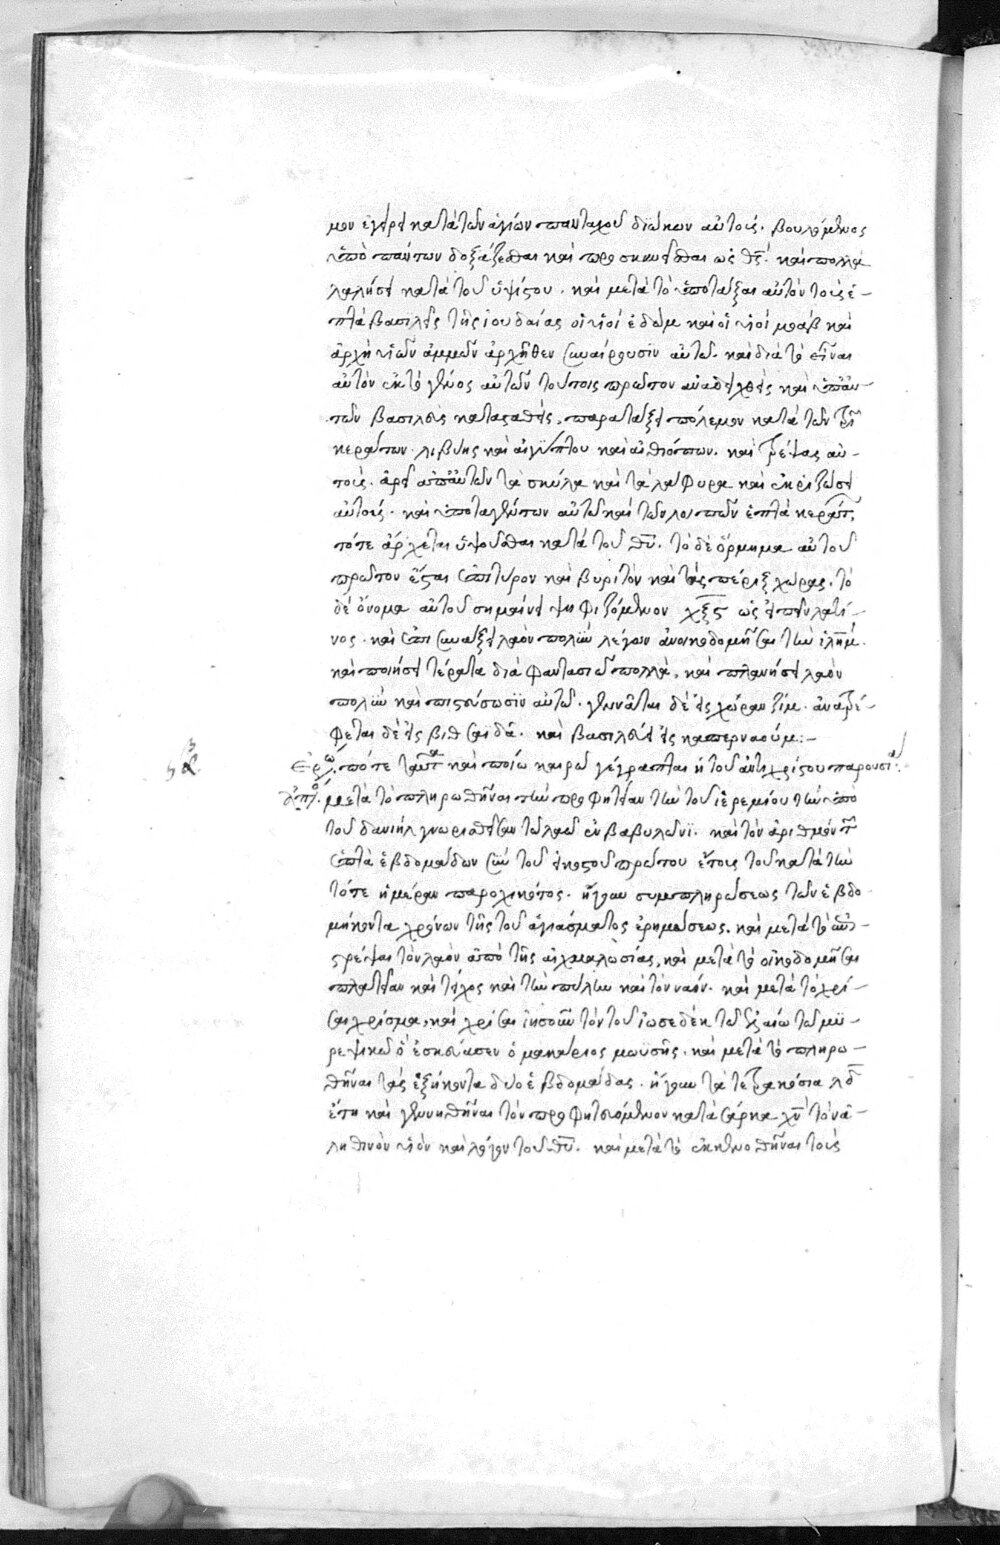 μον ἐγείρει κατὰ τῶν ἁγίων πανταχοῦ διώκων αὐτούς. βουλόμενος
ὑπὸ πάντων δοξάζεσθαι καὶ προσκυνεῖσθαι ὡς θς̅. καὶ πολλὰ
λαλήσει κατὰ τοῦ ὑψίστου. καὶ μετὰ τὸ ὑποτάξαι αὐτὸν τοὺς ἑ-
πτὰ βασιλεῖς τῆς ἰουδαίας οἱ υἱοὶ ἐδὼμ καὶ οἱ υἱοὶ μωὰβ καὶ
ἀρχὴ υἱῶν ἀμμὼν ἀρχῆθεν συναίρουσϊν αὐτῶ. καὶ διὰ τὸ εἶναι
αὐτὸν ἐκ τὸ γένος αὐτῶν τούτοις πρῶτον ἀναδειχθεὶς καὶ ὑπ' αὐ-
τῶν βασιλεὺς κατασταθεὶς, παρατάξει πόλεμον κατὰ τῶν τριῶν
κεράτων λιβύης καὶ αἰγύπτου καὶ αἰθιόπων. καὶ τρέψας αὐ-
τούς. ἄρει ἀπ' αὐτῶν τὰ σκῦλα καὶ τὰ λάφυρα καὶ ἐκριζώσει
αὐτούς. καὶ ὑποταγέντων αὐτῶ καὶ τῶν λοιπῶν ἑπτὰ κεράτων,
τότε ἄρχεται ὑψοῦσθαι κατὰ τοῦ θυ̅. τὸ δὲ ὅρμημα αὐτοῦ
πρῶτον ἔσται ἐπὶ τύρον καὶ βυριτὸν καὶ τὰς πέριξ χώρας. τὸ
δὲ ὄνομα αὐτοῦ σημαίνει ψηφιζόμενον χξς̅ ὡς
νος. καὶ ἐπισυνάξει λαὸν πολὺν λέγων ἀνοικοδομῆσαι τὴν ἱλήμ.
καὶ ποιήσει τέρατα διὰ φαντασιῶν πολλὰ, καὶ πλανήσει λαὸν
πολὺν καὶ πιστεύσωσϊν αὐτῶ. γεννᾶται δὲ εἰς χώραν ζίμ. ἀνατρέ-
φεται δὲ εἰς βιθσαϊδά. καὶ βασιλεύει εἰς καπερναούμ:-
Ἐρώ. πότε ταῦτα καὶ ποίω καιρῶ γέγραπται ἡ τοῦ ἀντιχρίστου παρουσία.
ἀπό. μετὰ τὸ πληρωθῆναι τὴν προφητείαν τὴν τοῦ ἱερεμίου τὴν ὑπὸ
τοῦ δανιὴλ γνωρισθεῖσαν τῶ λαῶ ἐν βαβυλῶνϊ. καὶ τὸν ἀριθμὸν τῶν
ἑπτὰ ἑβδομάδων σὺν τοῦ εἰκοστοῦ πρώτου ἔτους τοῦ κατὰ τὴν
τότε ἡμέραν παρωχηκότος. ἤγουν συμπληρώσεως τῶν ἑβδο-
μήκοντα χρόνων τῆς τοῦ ἁγιάσματος ἐρημώσεως. καὶ μετὰ τὸ ἀπο-
στρέψαι τὸν λαὸν ἀπὸ τῆς αἰχμαλωσίας, καὶ μετὰ τὸ οἰκοδομῆσαι
πλατεῖαν καὶ τεῖχος καὶ τὴν πόλιν καὶ τὸν ναόν. καὶ μετὰ τὸ χρί-
σαι χρίσμα, καὶ χρίσαι ἰησοῦν τὸν τοῦ ἰωσεδὲκ τῶ ἐλαίω τῶ μυ-
ρεψικῶ ὃ ἐσκεύασεν ὁ μακάριος μωϋσῆς. καὶ μετὰ τὸ πληρω-
θῆναι τὰς ἑξήκοντα δύο ἑβδομάδας. ἤγουν τὰ τετρακόσια λδ̅
ἔτη καὶ γεννηθῆναι τὸν προφητευόμενον κατὰ σάρκα χν̅ τὸν ἀ-
ληθινὸν υἱὸν καὶ λόγον τοῦ θυ̅. καὶ μετὰ τὸ ἐκκενωθῆναι τοὺς